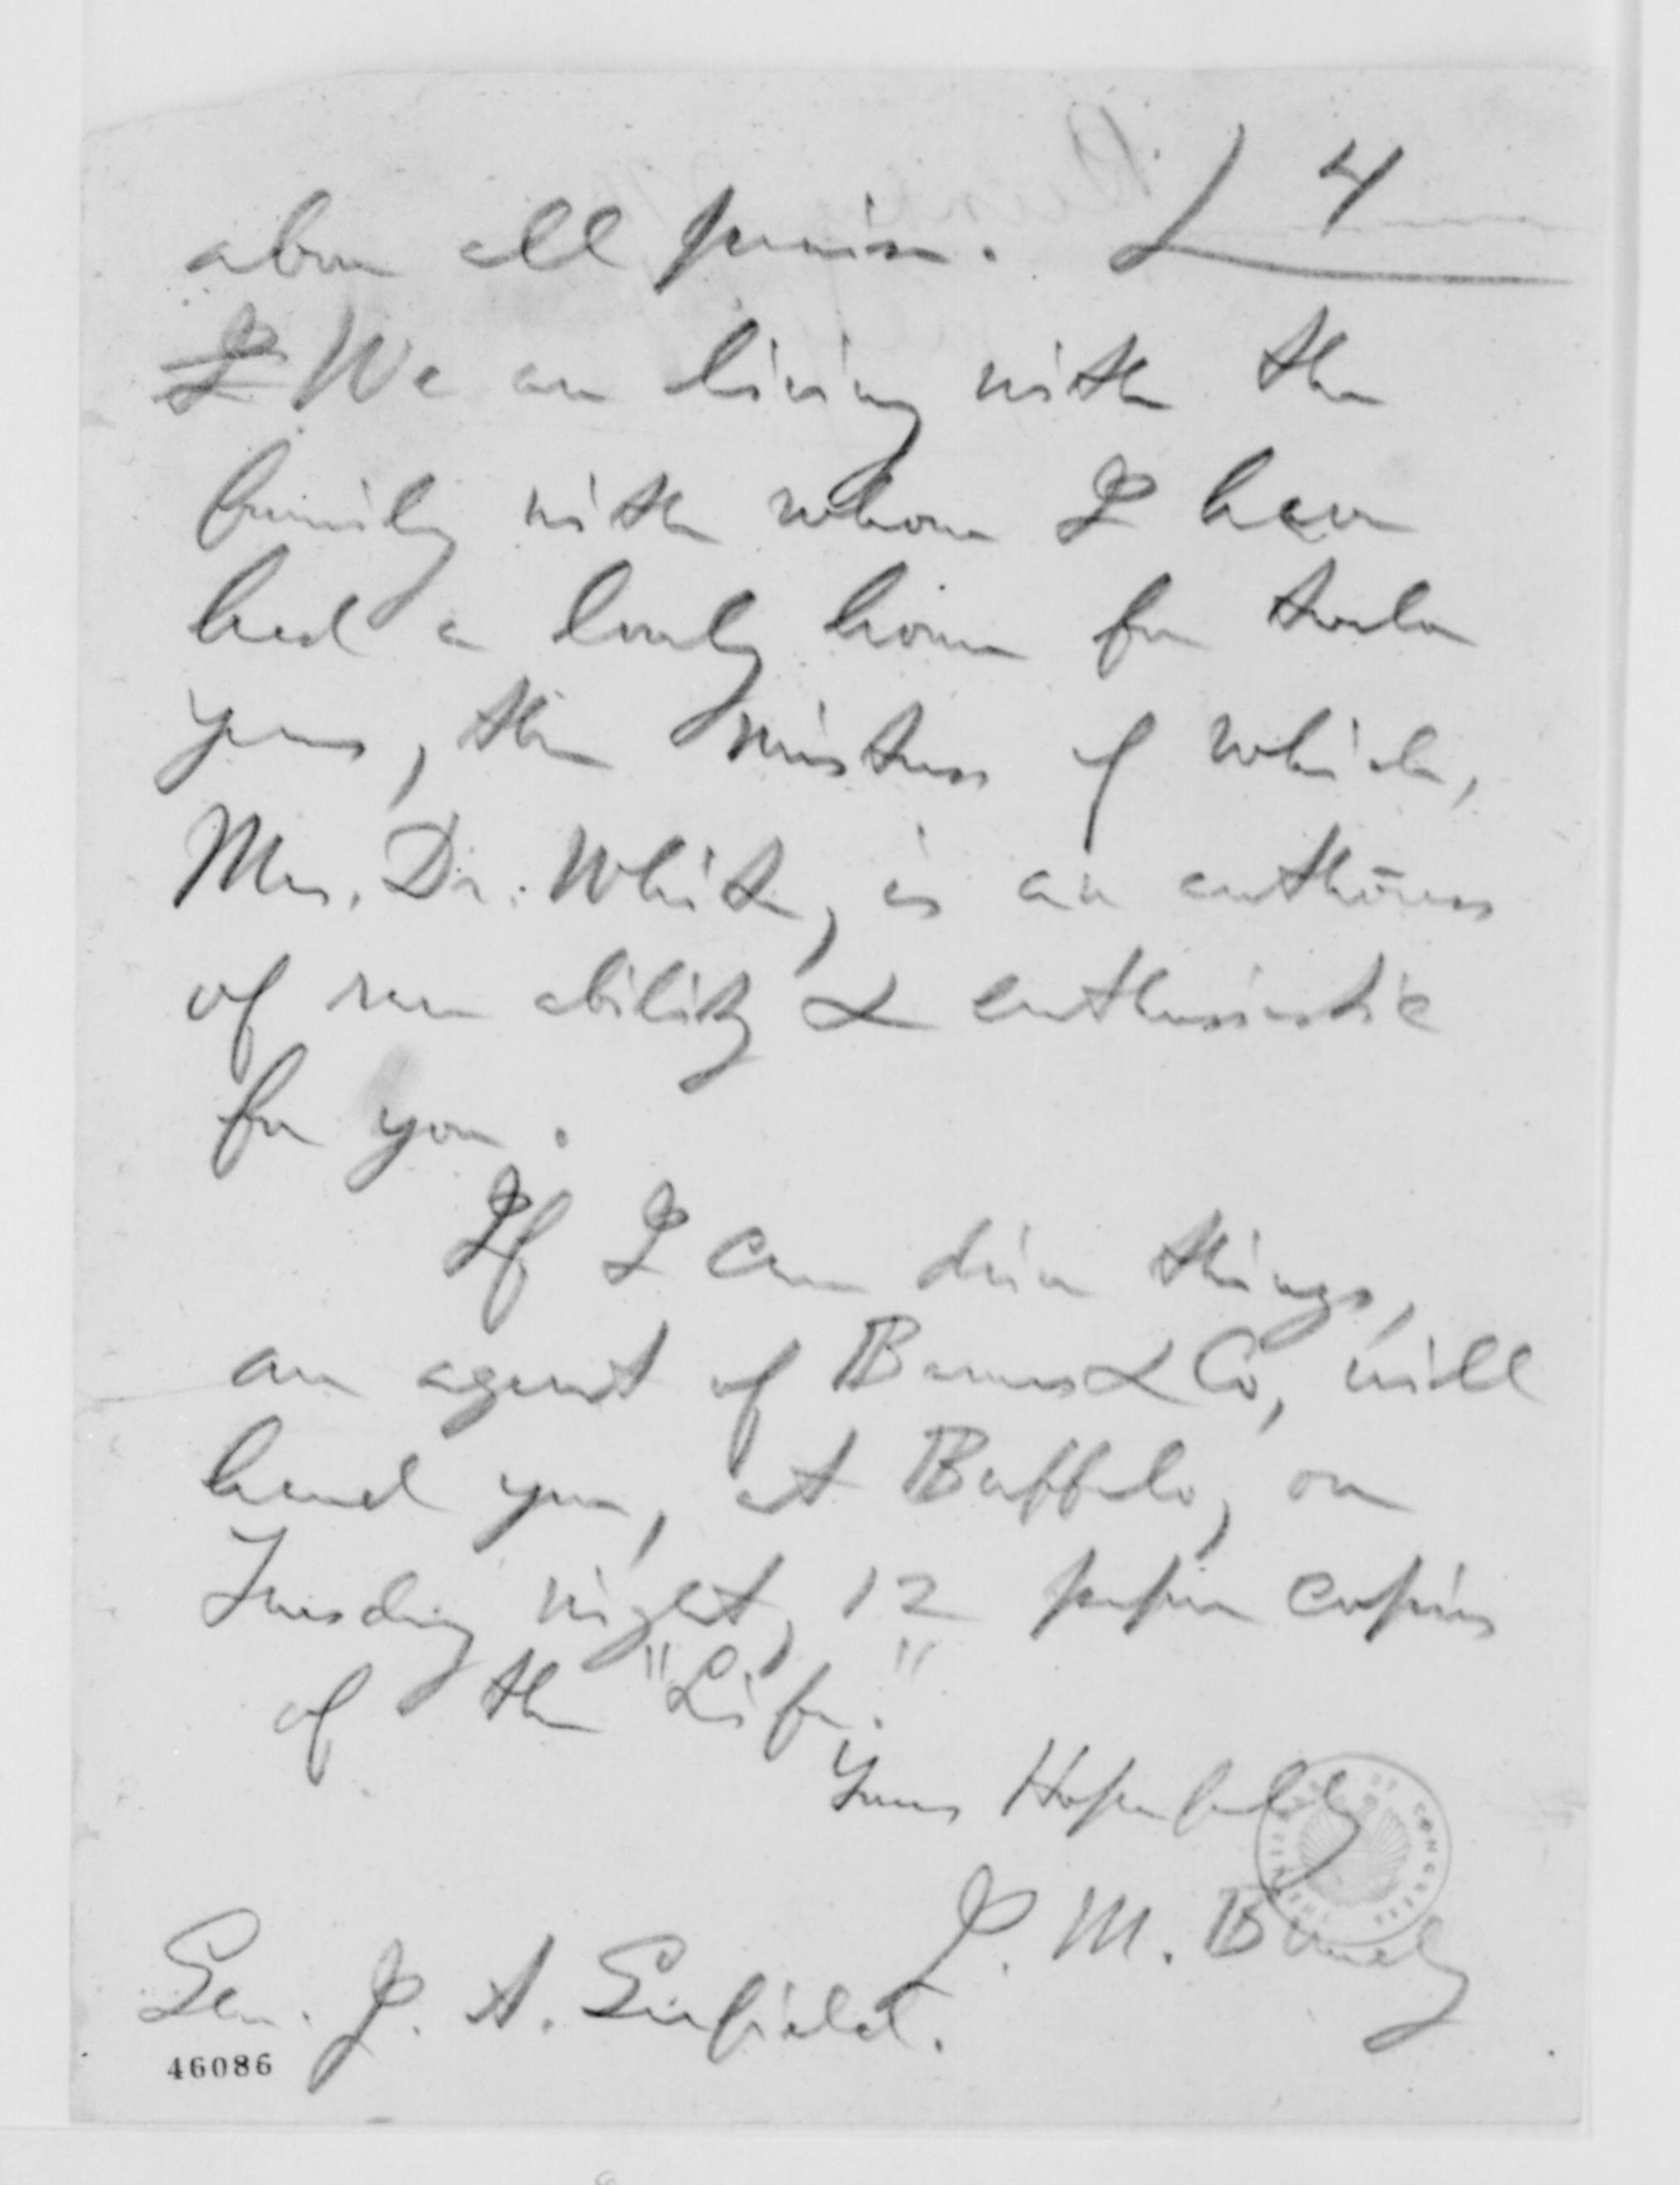 4
above all praise.
I We are living with the
family with whom I have
had a lovely home for twelve
years, the mistress of which,
Mrs. Dr. White, is an authoress
of rare ability & enthusiastic
for you.
If I can drive things,
an agent of Barnes & Co, will
hand you, at Buffalo, on
Tuesday night, 12 paper copies
of the "Life."
Yours Hopefully
J. M. Bundy
Gen. J. A. Garfield.
46086